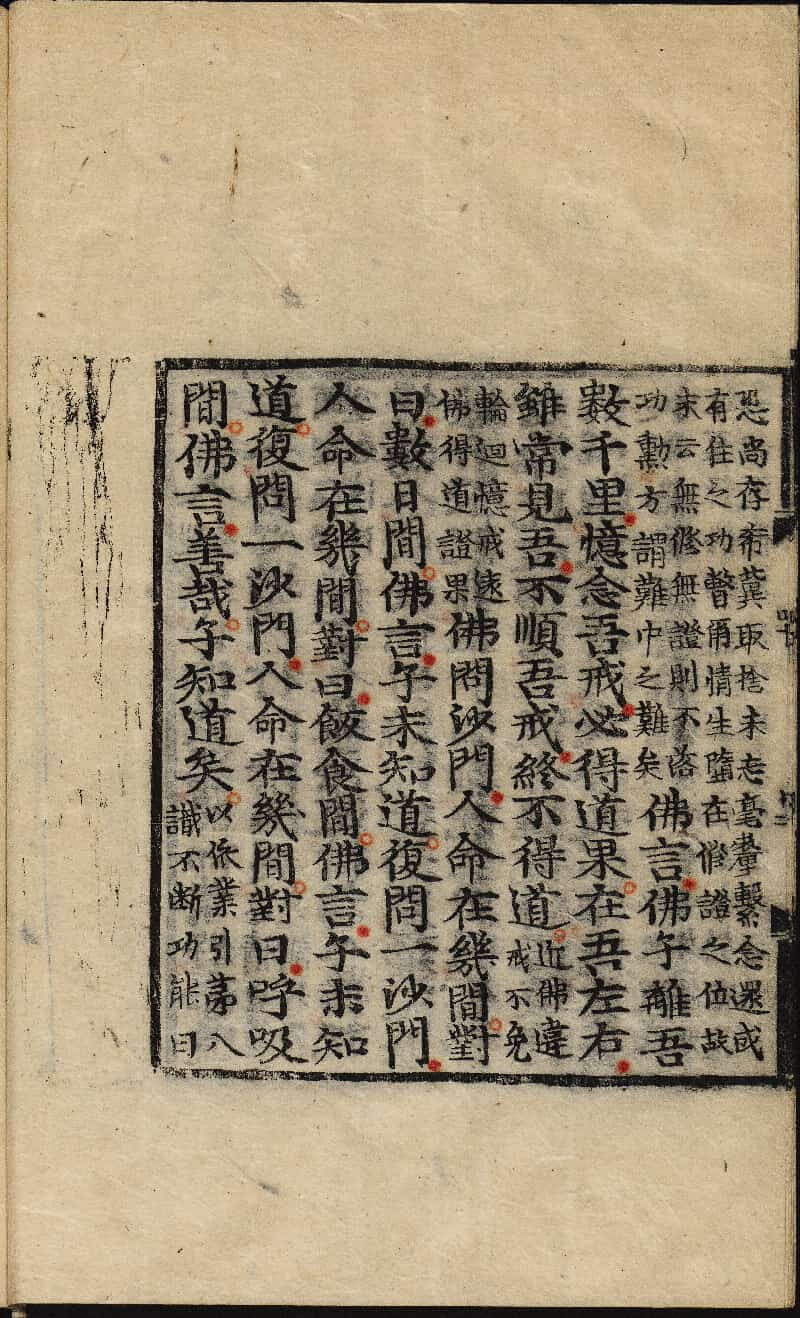 恐尚存希冀取捨未忘毫氂繫念還或
有住之功瞥爾情生墮在修證之位故
末云無修無證則不落
功勳方謂難中之難矣
佛言佛子離吾
數千里憶念吾戒必得道果在吾左右
雖常見吾不順吾戒終不得道
近佛違
戒不免
輪迴憶戒速
佛得道證果
佛問沙門人命在幾間對
曰數日間佛言子未知道復問一沙門
人命在幾間對曰飯食間佛言子未知
道復問一沙門人命在幾間對曰呼吸
間佛言善哉子知道矣
以依業引第八
識不断功能曰